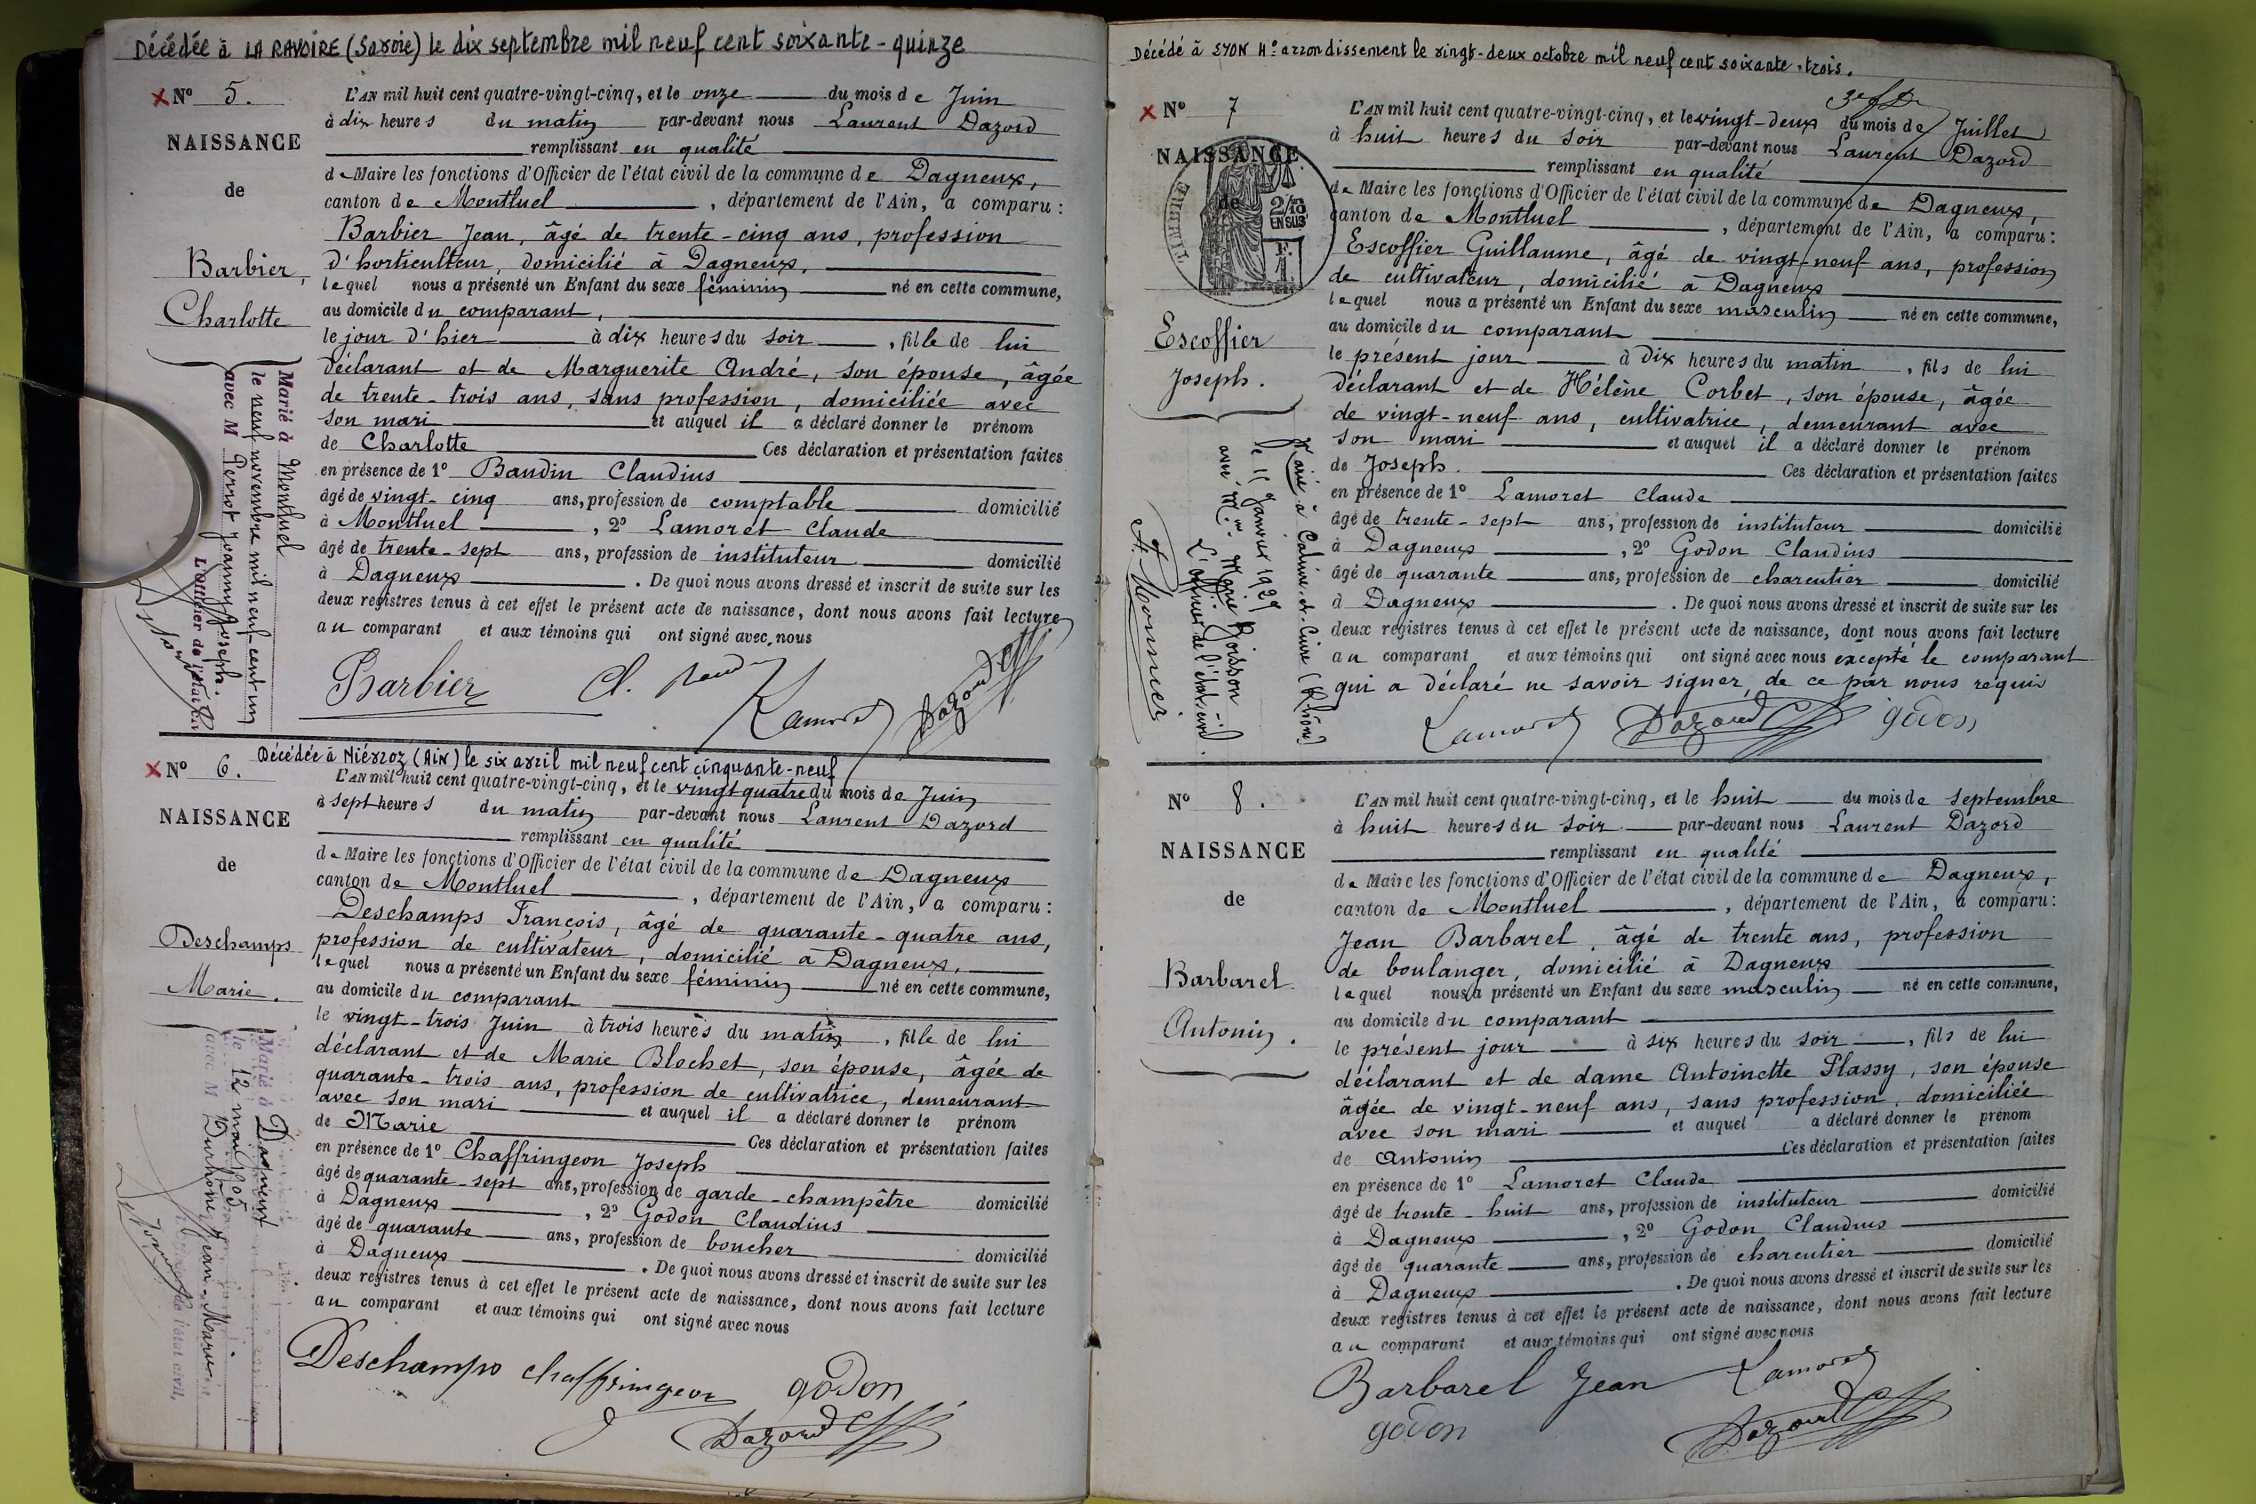 Décédée à LA RAVOIRE (Savoie) le dix septembre mil neuf cent soixante-quinze
N° 5.
NAISSANCE
de
Barbier,
Charlotte
Marié à Montluel
le neuf novembre mil neuf cent un
avec M Perrot Joanny Joseph.
L'officier de l'état civil
L'AN mil huit cent quatre-vingt-cinq, et le onze du mois de Juin
à dix heures du matin par-devant nous Laurent Dazord
remplissant en qualité
de Maire les fonctions d'Officier de l'état civil de la commune de Dagneux,
canton de Montluel, département de l'Ain, a comparu :
Barbier Jean, âgé de trente-cinq ans, profession
d'horticulteur, domicilié à Dagneux,
lequel nous a présenté un Enfant du sexe féminin né en cette commune,
au domicile du comparant,
le jour d'hier à dix heures du soir, fille de lui
déclarant et de Marguerite André, son épouse, âgée
de trente-trois ans, sans profession, domiciliée avec
son mari et auquel il a déclaré donner le prénom
de Charlotte Ces déclaration et présentation faites
en présence de 1° Baudin Claudius
âgé de vingt-cinq ans, profession de comptable domicilié
à Montluel, 2° Lamoret Claude
âgé de trente-sept ans, profession de instituteur domicilié
à Dagneux. De quoi nous avons dressé et inscrit de suite sur les
deux registres tenus à cet effet le présent acte de naissance, dont nous avons fait lecture
au comparant et aux témoins qui ont signé avec nous
Barbier Cl. Baudin Lamoret Dazord
Décédée à Niévroz (Ain) le six avril mil neuf cent cinquante-neuf
N° 6.
NAISSANCE
de
Deschamps
Marie.
Marié à Dagneux
le 12 mai 1905
avec M Durhône Jean-Marie
L'an mil huit cent quatre-vingt-cinq, et le vingt quatre du mois de Juin
à sept heures du matin par-devant nous Laurent Dazord
remplissant en qualité
de Maire les fonctions d'Officier de l'état civil de la commune de Dagneux
canton de Montluel, département de l'Ain, a comparu :
Deschamps François, âgé de quarante-quatre ans,
profession de cultivateur, domicilié à Dagneux,
lequel nous a présenté un Enfant du sexe féminin né en cette commune,
au domicile du comparant
le vingt-trois Juin à trois heures du matin, fille de lui
déclarant et de Marie Blochet, son épouse, âgée de
quarante-trois ans, profession de cultivatrice, demeurant
avec son mari et auquel il a déclaré donner le prénom
de Marie Ces déclaration et présentation faites
en présence de 1° Chaffringeon Joseph
âgé de quarante-sept ans, profession de garde-champêtre domicilié
à Dagneux, 2° Godon Claudius
âgé de quarante ans, profession de boucher domicilié
à Dagneux. De quoi nous avons dressé et inscrit de suite sur les
deux registres tenus à cet effet le présent acte de naissance, dont nous avons fait lecture
au comparant et aux témoins qui ont signé avec nous
Deschamps Chaffringeon godon
Dazord
Décédé à LYON 4e arrondissement le vingt-deux octobre mil neuf cent soixante-trois.
N° 7
NAISSANCE
de
TIMBRE
2/10
EN SUS
F.
1.
Escoffier
Joseph.
Marié à Caluire-et-Cuire (Rhône)
le 15 Janvier 1929
avec Mme Marie Poisson
L'officier de l'état civil.
A. Monnier
L'AN mil huit cent quatre-vingt-cinq, et le vingt-deux du mois de Juillet
à huit heures du soir par-devant nous Laurent Dazord
remplissant en qualité
de Maire les fonctions d'Officier de l'état civil de la commune de Dagneux,
canton de Montluel, département de l'Ain, a comparu :
Escoffier Guillaume, âgé de vingt-neuf ans, profession
de cultivateur, domicilié à Dagneux
lequel nous a présenté un Enfant du sexe masculin né en cette commune,
au domicile du comparant
le présent jour à dix heures du matin, fils de lui
déclarant et de Hélène Corbet, son épouse, âgée
de vingt-neuf ans, cultivatrice, demeurant avec
son mari et auquel il a déclaré donner le prénom
de Joseph. Ces déclaration et présentation faites
en présence de 1° Lamoret Claude
âgé de trente-sept ans, profession de instituteur domicilié
à Dagneux, 2° Godon Claudius
âgé de quarante ans, profession de charcutier domicilié
à Dagneux. De quoi nous avons dressé et inscrit de suite sur les
deux registres tenus à cet effet le présent acte de naissance, dont nous avons fait lecture
au comparant et aux témoins qui ont signé avec nous excepté le comparant
qui a déclaré ne savoir signer, de ce par nous requis
Lamoret Dazord godon
N° 8.
NAISSANCE
de
Barbarel
Antonin.
L'AN mil huit cent quatre-vingt-cinq, et le huit du mois de septembre
à huit heures du soir par-devant nous Laurent Dazord
remplissant en qualité
de Maire les fonctions d'Officier de l'état civil de la commune de Dagneux,
canton de Montluel, département de l'Ain, a comparu :
Jean Barbarel, âgé de trente ans, profession
de boulanger, domicilié à Dagneux
lequel nous a présenté un Enfant du sexe masculin né en cette commune,
au domicile du comparant
le présent jour à six heures du soir, fils de lui
déclarant et de dame Antoinette Plassy, son épouse
âgée de vingt-neuf ans, sans profession, domiciliée
avec son mari et auquel a déclaré donner le prénom
de Antonin Ces déclaration et présentation faites
en présence de 1° Lamoret Claude
âgé de trente-huit ans, profession de instituteur domicilié
à Dagneux, 2° Godon Claudius
âgé de quarante ans, profession de charcutier domicilié
à Dagneux. De quoi nous avons dressé et inscrit de suite sur les
deux registres tenus à cet effet le présent acte de naissance, dont nous avons fait lecture
au comparant et aux témoins qui ont signé avec nous
Barbarel Jean Lamoret
godon Dazord